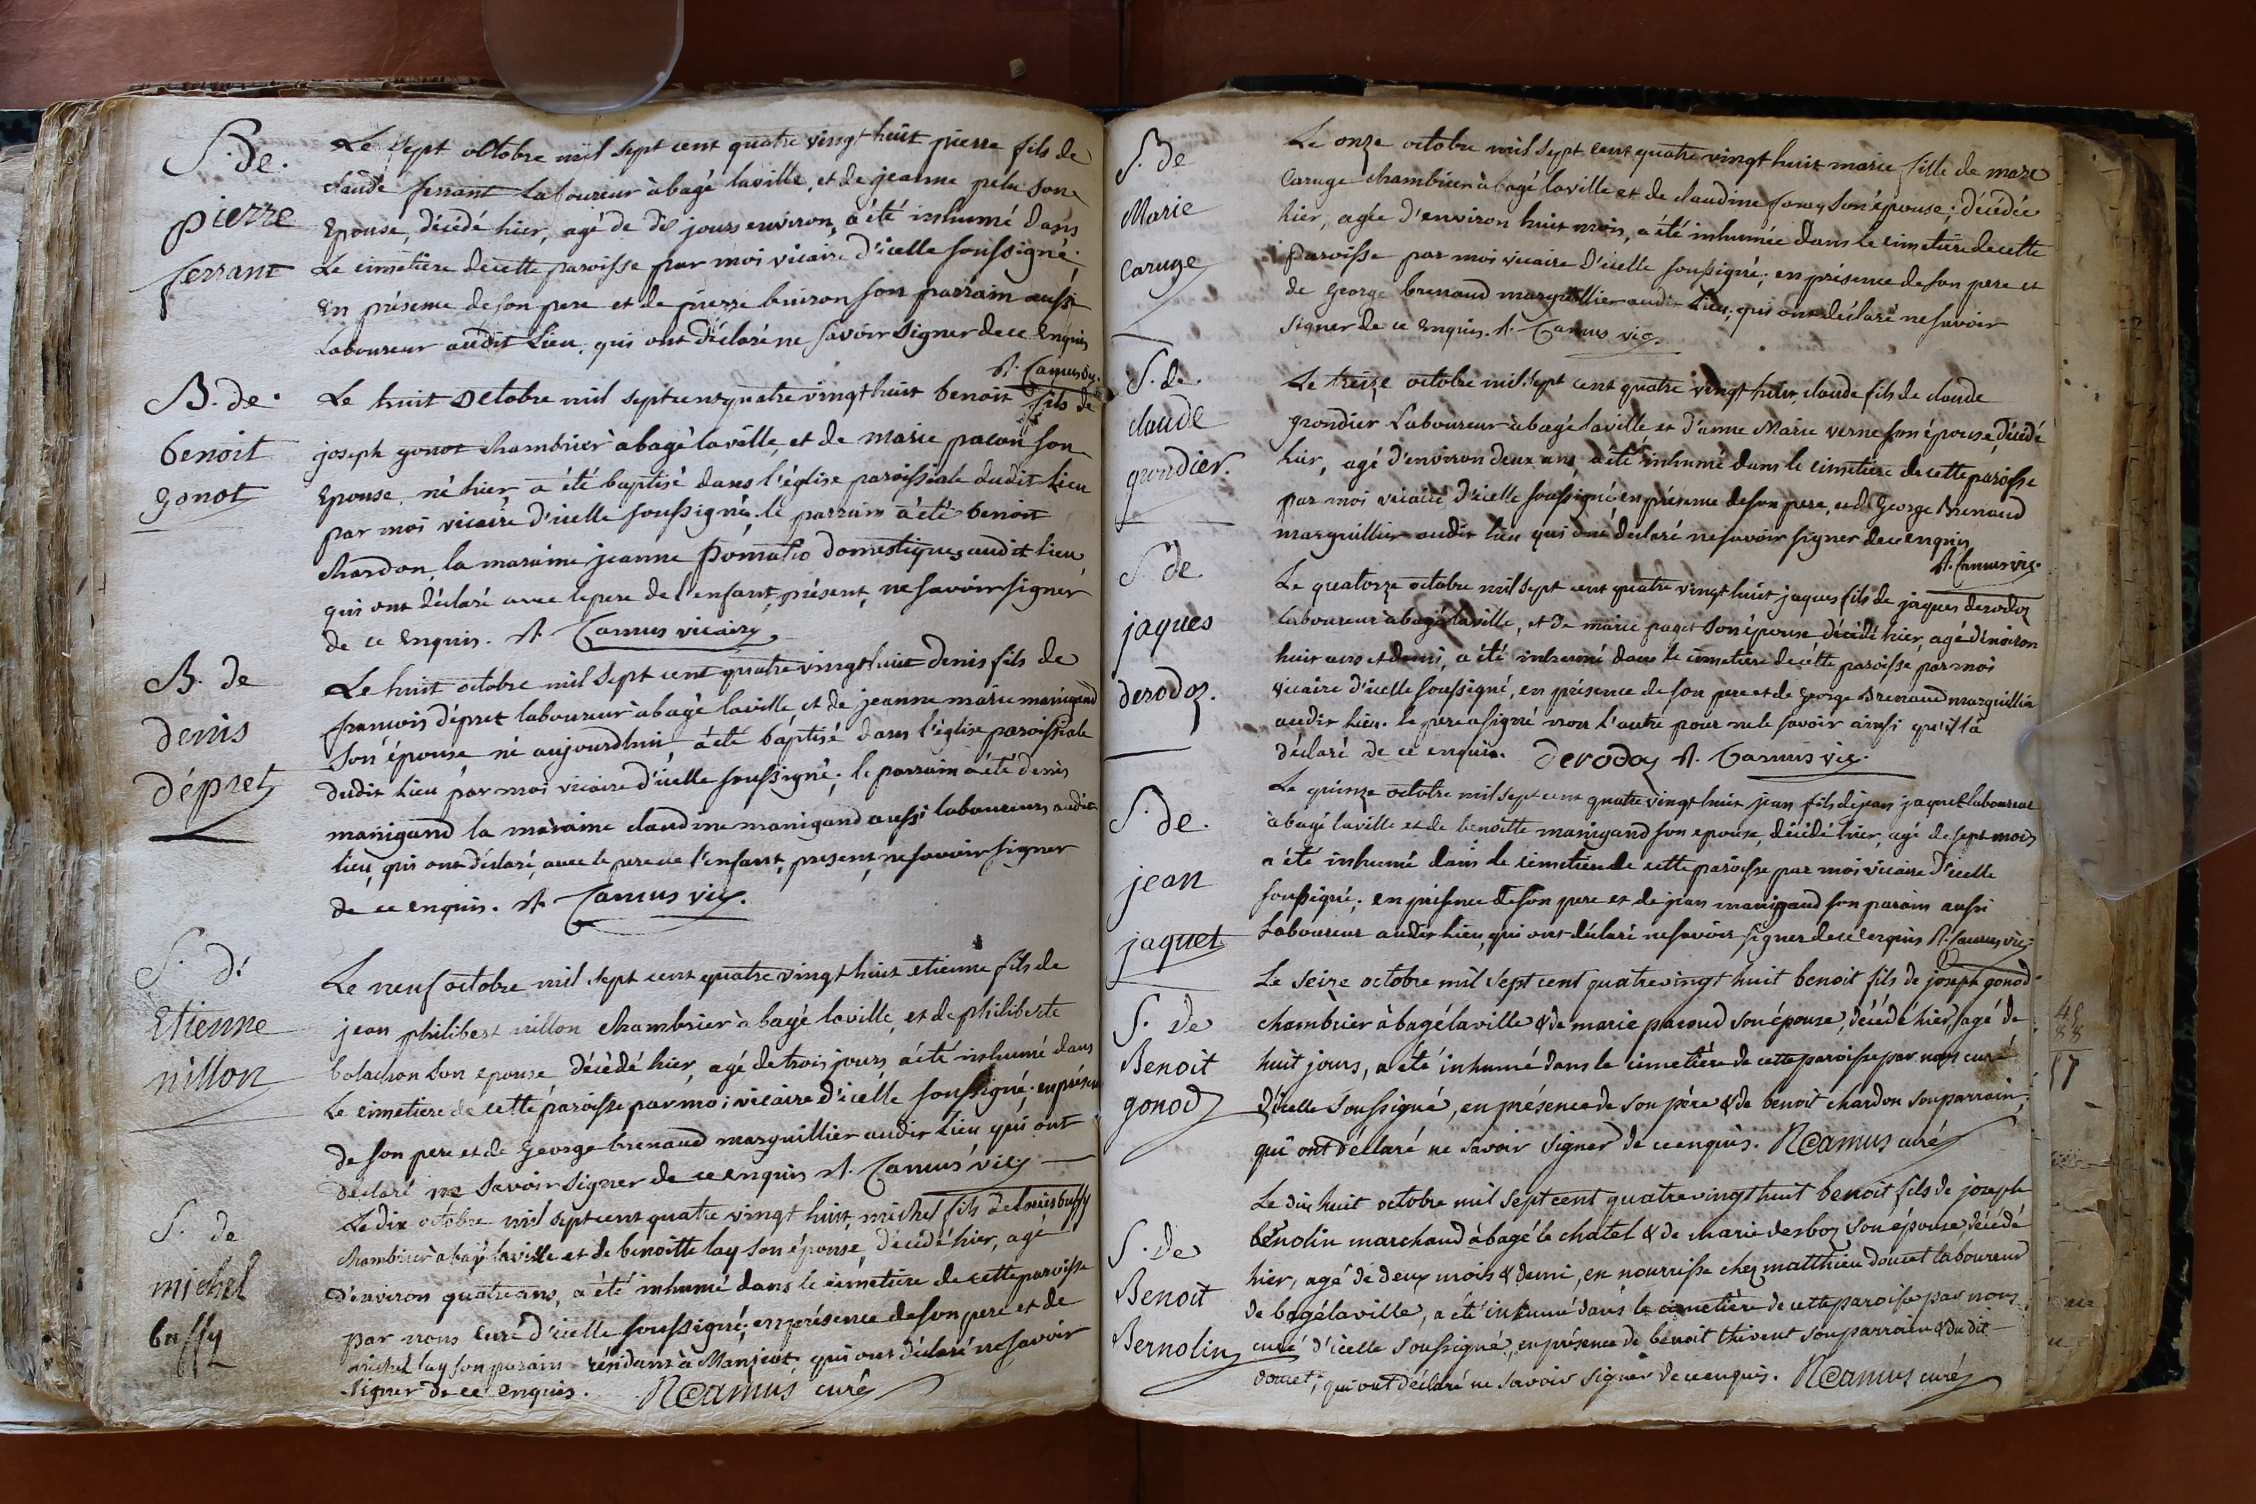 S. de.
pierre
ferrant
Le sept octobre mil sept cent quatre vingt huit pierre fils de
claude ferrant laboureur à bagé laville, et de jeanne pelu son
Epouse, décédé hier, agé de dix jours environ, a été inhumé dans
Le cimetiere de cette paroisse par moi vicaire d'icelle soussigné;
en présence de son pere et de pierre buiron son parrain aussi
Laboureur audit Lieu, qui ont déclaré ne savoir signer de ce Enquis
A. Camus vic.
B. de.
benoit
gonot
Le huit octobre mil sept cent quatre vingt huit benoit fils de
joseph gonot chambrier à bagé laville, et de marie pacon son
Epouse, né hier, a été baptisé dans l'église paroissiale dudit Lieu
par moi vicaire d'icelle soussigné, le parrain a été benoit
chardon, la maraine jeanne domestiques audit lieu,
qui ont déclaré avec le pere de l'enfant, présent, ne savoir signer
de ce Enquis. A. Camus vicaire
B. de
denis
dépret
Le huit octobre mil sept cent quatre vingt huit denis fils de
francois dépret laboureur à bagé laville et de jeanne marie manigand
son épouse né aujourdhui a été baptisé dans l'église paroissiale
dudit Lieu par moi vicaire d'icelle soussigné; le parrain a été denis
manigand la maraine claudine manigand aussi laboureurs audit
lieu, qui ont déclaré, avec le pere de l'enfant, présent, ne savoir signer
de ce enquis. A. Camus vic.
S. de
Etienne
nillon
Le neuf octobre mil sept cent quatre vingt huit etienne fils de
jean philibert nillon chambrier à bagé laville, et de philiberte
bolachon son epouse décédé hier, agé de trois jours, a été inhumé dans
Le cimetiere de cette paroisse par moi vicaire d'icelle soussigné; en présence
de son pere et de George brenaud marguillier audit Lieu qui ont
declaré ne savoir signer de ce enquis A. Camus vic
S. de
michel
buffy
Le dix octobre mil sept cent quatre vingt huit, michel fils de louis buffy
chambrier à bagé laville et de benoitte lay son épouse, décédé hier, agé
d'environ quatre ans, a été inhumé dans le cimetiere de cette paroisse
par nous Curé d'icelle soussigné; en présence de son pere et de
michel lay son parain résidant à Manjeat, qui ont déclaré ne savoir
signer de ce enquis. R Camus curé
S. de
Marie
Caruge
Le onze octobre mil sept cent quatre vingt huit marie fille de marc
Caruge chambrier à bagé laville et de claudine forey son épouse; décédée
hier, agée d'environ huit mois, a été inhumée dans le cimetiere de cette
Paroisse par moi vicaire d'icelle soussigné; en présence de son pere et
de George brenaud marguillier audit Lieu; qui ont déclaré ne savoir
signer de ce enquis. A. Camus vic.
S. de.
claude
grondier.
Le treize octobre mil sept cent quatre vingt huit, claude fils de claude
grondier Laboureur à bagé laville et d'anne Marie verne son épouse, décédé
hier, agé d'environ deux ans, a été inhumé dans le cimetiere de cette paroisse
par moi vicaire d'icelle soussigné, en présence de son pere, et de George Brenaud
marguillier audit lieu qui ont déclaré ne savoir signer de ce enquis
A. Camus vic.
S. de.
jaques
derodoz.
Le quatorze octobre mil sept cent quatre vingt huit jaques fils de jaques derodoz
Laboureur à bagé laville, et de marie paget son épouse décédé hier, agé d'environ
huit ans et demi, a été inhumé dans le cimetiere de cette paroisse par moi
vicaire d'icelle soussigné, en présence de son pere et de george Brenaud marguillier
audit lieu. le pere a signé non l'autre pour ne le savoir ainsi qu'il l'a
déclaré de ce enquis. Derodoz A. Camus vic.
S. de.
jean
jaquet
Le quinze octobre mil sept cent quatre vingt huit jean fils de jean jaquet laboureur
à bagé laville et de benoitte manigand son epouse, décédé hier, agé de sept mois
a été inhumé dans le cimetiere de cette paroisse par moi vicaire d'icelle
soussigné; en présence de son pere et de jean manigand son parain aussi
Laboureur audit lieu, qui ont déclaré ne savoir signer de ce enquis A. Camus vic.
S. de
Benoit
gonod
Le seize octobre mil sept cent quatre vingt huit benoit fils de joseph gonod
chambrier à bagé laville & de marie pacoud son épouse, décédé hier, agé de
huit jours, a été inhumé dans le cimetière de cette paroisse par nous curé
d'icelle soussigné, en présence de son père & de benoit chardon son parrain;
qui ont déclaré ne savoir signer de ce enquis. R Camus curé
48
88
17
S. de
Benoit
Bernolin
Le dix huit octobre mil sept cent quatre vingt huit benoit fils de joseph
bernolin marchand à bagé le chatel & de marie desboz son épouse décédé
hier, agé de deux mois & demi, en nourrisse chez matthieu doucet laboureur
de bagé laville, a été inhumé dans le cimetière de cette paroisse par nous
curé d'icelle soussigné, en présence de benoit thivent son parrain & dudit
doucet; qui ont déclaré ne savoir signer de ce enquis. R Camus curé